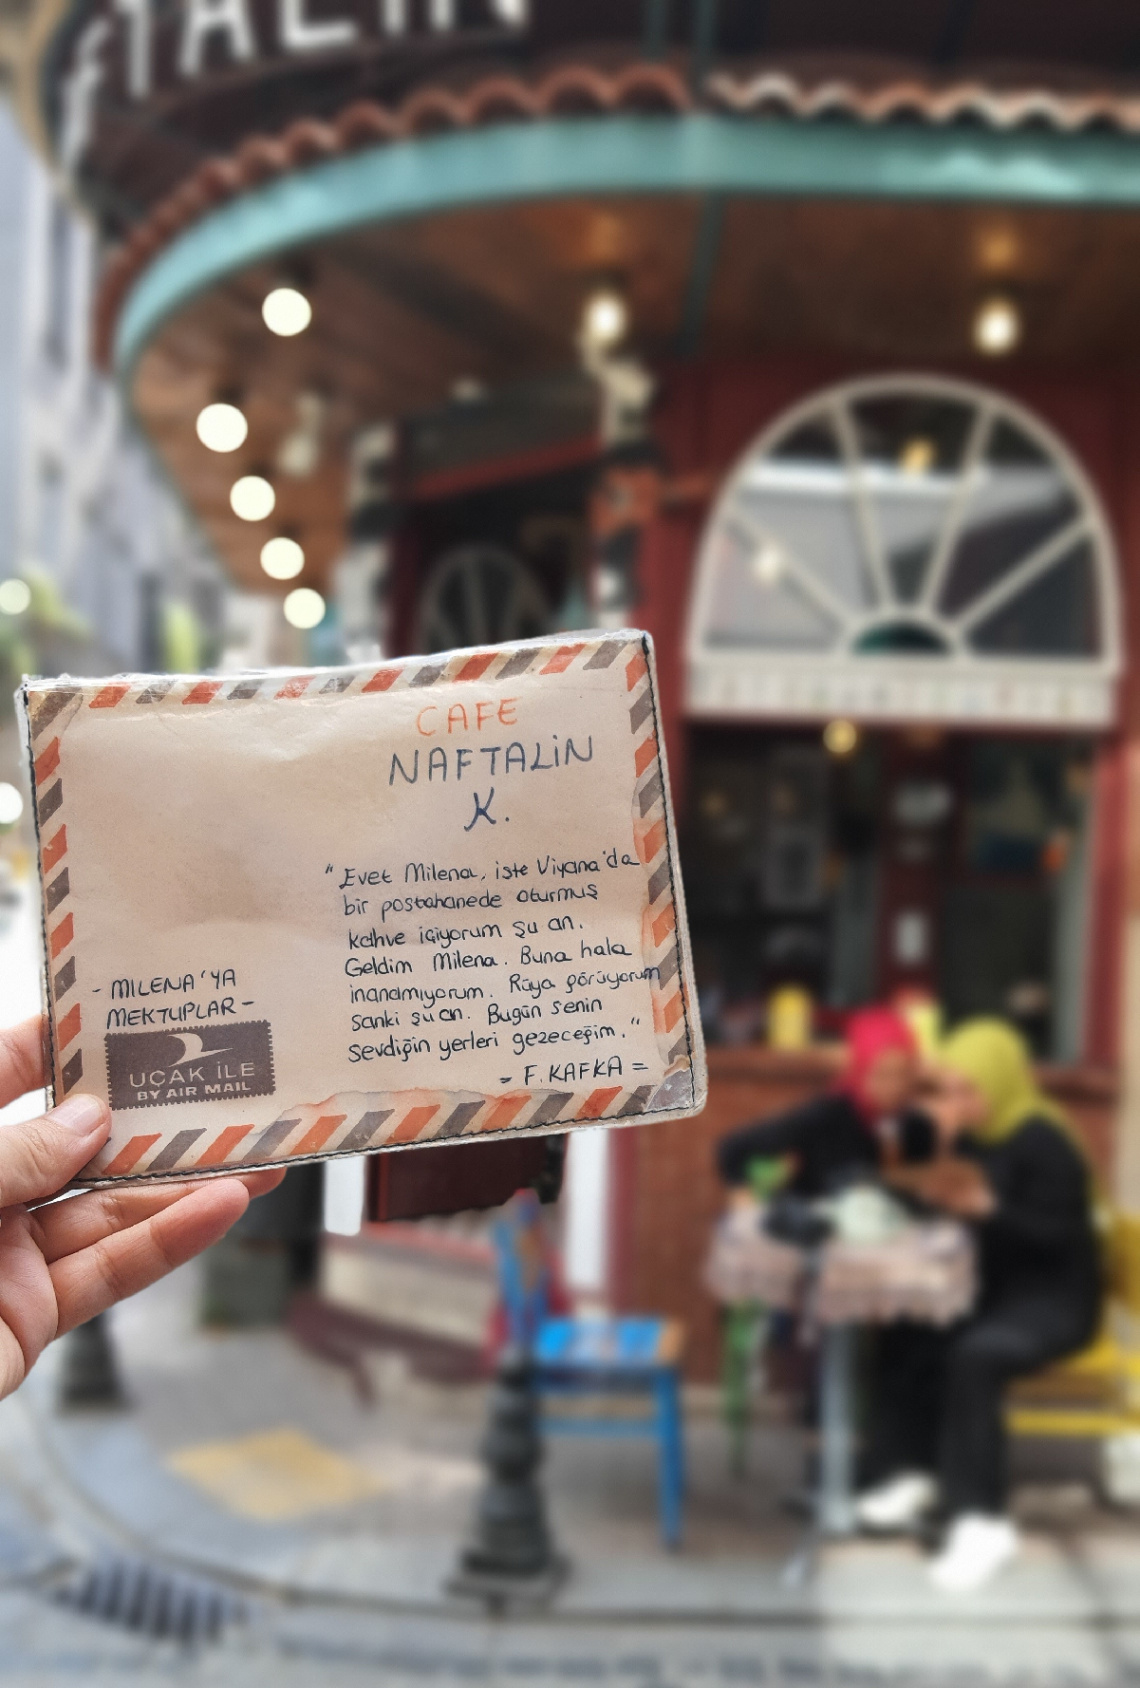 TALİN
CAFE
NAFTALİN
K.
"Evet Milena, işte Viyana'da
bir postahanede oturmuş
kahve içiyorum şu an.
Geldim Milena. Buna hala
inanamıyorum. Rüya görüyorum
sanki şu an. Bugün senin
sevdiğin yerleri gezeceğim."
= F.KAFKA =
- MİLENA'YA
MEKTUPLAR -
UÇAK İLE
BY AIR MAIL